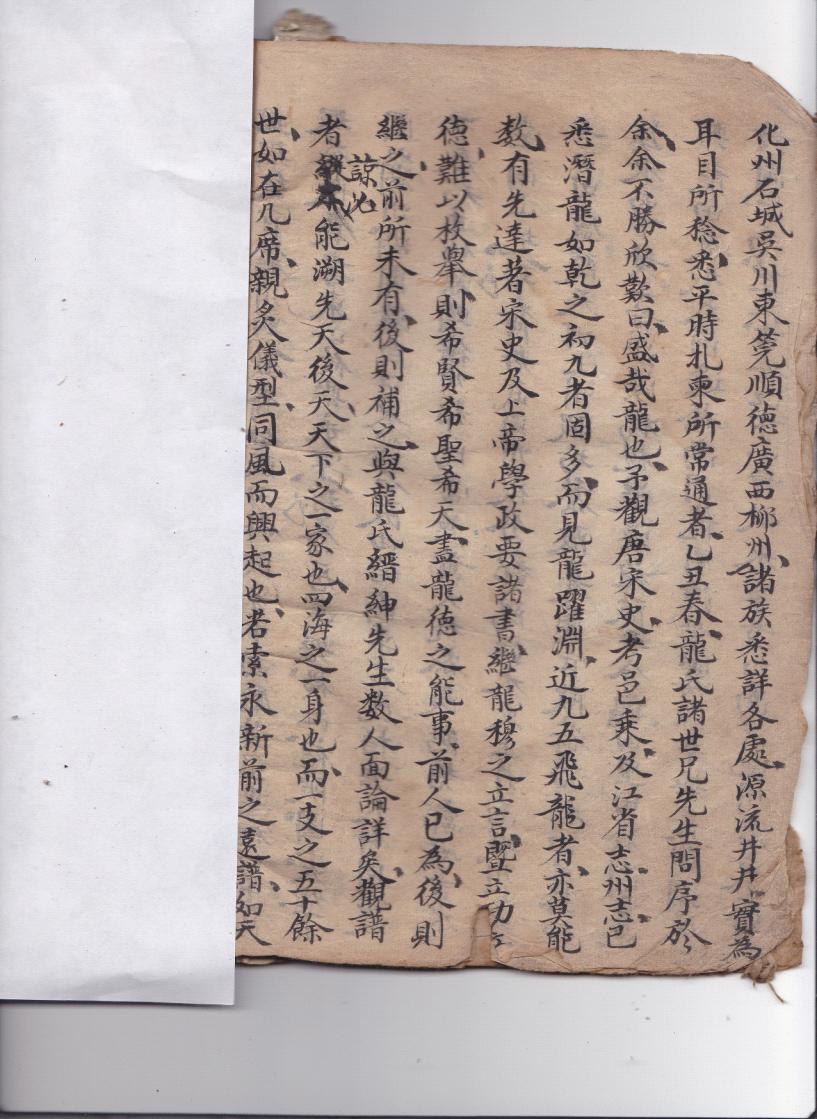 化州石城吳川東莞順德廣西柳州諸族悉詳各處源流井井實為
耳目所稔悉平時扎柬所常通者乙丑春龍氏諸世兄先生問序於
余余不勝欣歎曰盛哉龍也予觀唐宋史考邑乘及江省志州志已
悉潛龍如乾之初九者固多而見龍躍淵近九五飛龍者亦莫能
数有先達著宋史及上帝學政要諸書繼龍穆之立言暨立功立
德難以枚舉則希賢希聖希天盡龍德之能事前人已為後則
繼之前所未有後則補之與龍氏縉紳先生数人面論詳矣觀譜
者諒必能溯先天後天天下之一家也四海之一身也而一支之五十餘
世如在几席親炙儀型同風而興起也若索永新前之遠譜如天